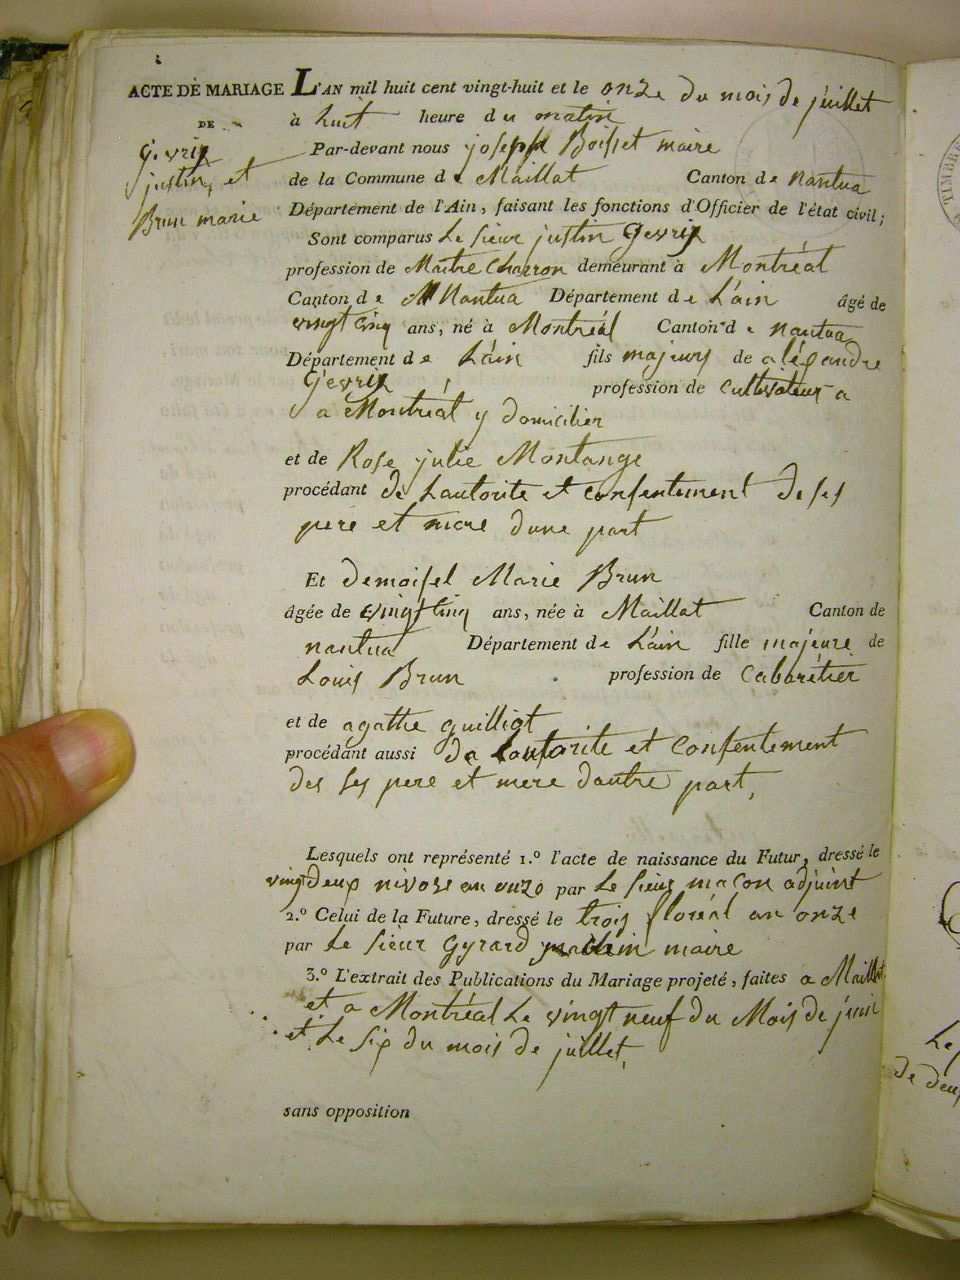 ACTE DE MARIAGE L'AN mil huit cent vingt-huit et le onze du mois de juillet
DE
à huit heure du matin
Gevrix
justin, et
Brun marie
Par-devant nous joseph Boisset maire
de la Commune de Maillat Canton de nantua
Département de l'Ain, faisant les fonctions d'Officier de l'état civil;
Sont comparus Le sieur justin Gevrix
profession de Maitre Charron demeurant à Montréal
Canton de Nantua Département de L'ain âgé de
vingt cinq ans, né à Montréal Canton d nantua
Département de L'ain fils majeurs de aléxandre
Gevrix profession de cultivateur a
a Montréal y domicilier
et de Rose julie Montange
procédant de Lautorite et consentement de ses
pere et mere dune part
Et demoisel Marie Brun
âgée de vingt cinq ans, née à Maillat Canton de
nantua Département de L'ain fille majeure de
Louis Brun profession de Cabarétier
et de agathe guilliot
procédant aussi de Lautorite et consentement
des ses pere et mere dautre part,
Lesquels ont représenté 1.º l'acte de naissance du Futur, dressé le
vingt deux nivose an onze par Le sieur maçon adjoint
2.º Celui de la Future, dressé le trois floréal an onze
par Le sieur Gyrard maire
3.º L'extrait des Publications du Mariage projeté, faites a Maillat
et a Montréal Le vingt neuf du Mois de juin
et Le six du mois de juillet,
sans opposition
TIMBRE
Le
de deux